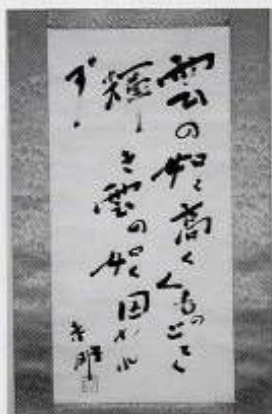 雲の如く高くくものごとく
輝き雲の如く囚われ
ず
未明